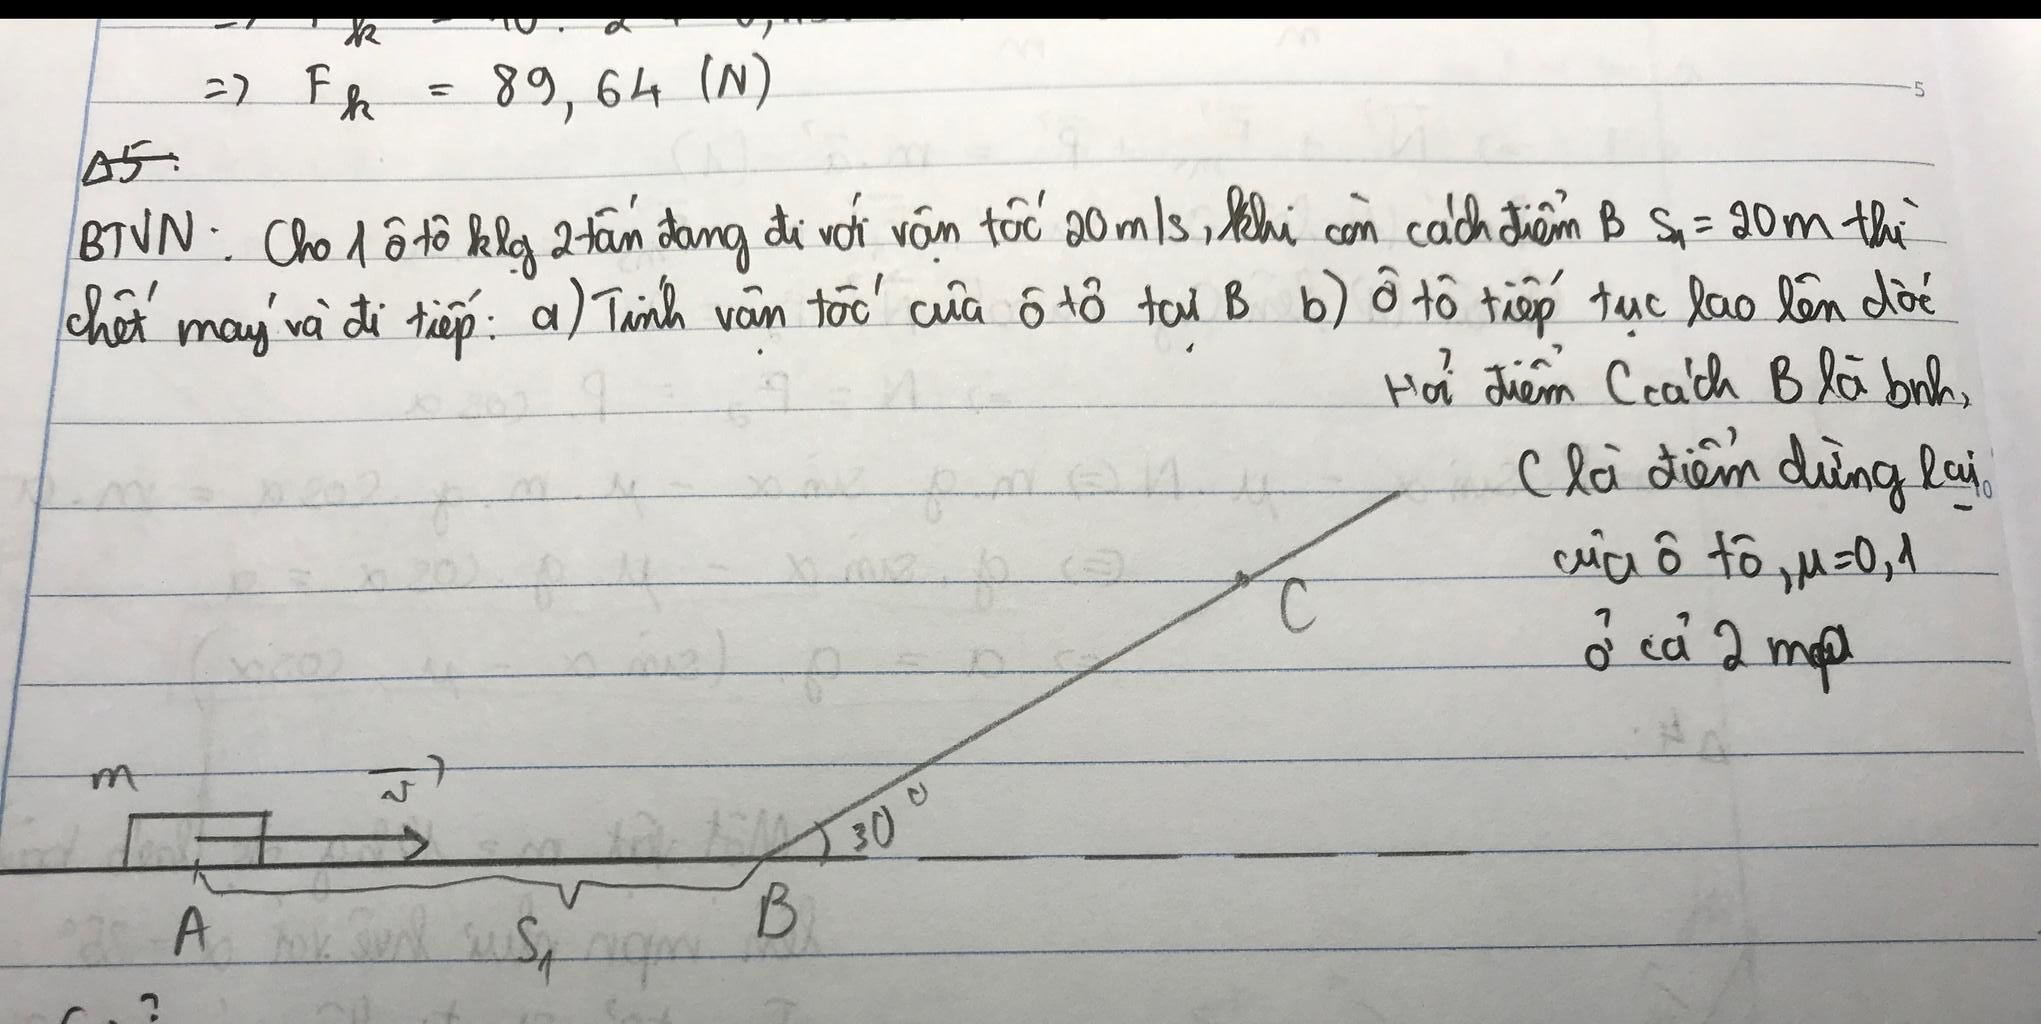 => F k = 89,64 (N)
5
Δ5:
BTVN: Cho 1 ô tô klg 2 tấn đang đi với vận tốc 20 m/s, khi còn cách điểm B S₁ = 20m thì
chết máy và đi tiếp: a) Tính vận tốc của ô tô tại B b) Ô tô tiếp tục lao lên dốc
Hỏi điểm C cách B là bnh,
C là điểm dừng lại
10
của ô tô, μ=0,1
ở cả 2 mp
C
m
v
30°
A
S₁
B